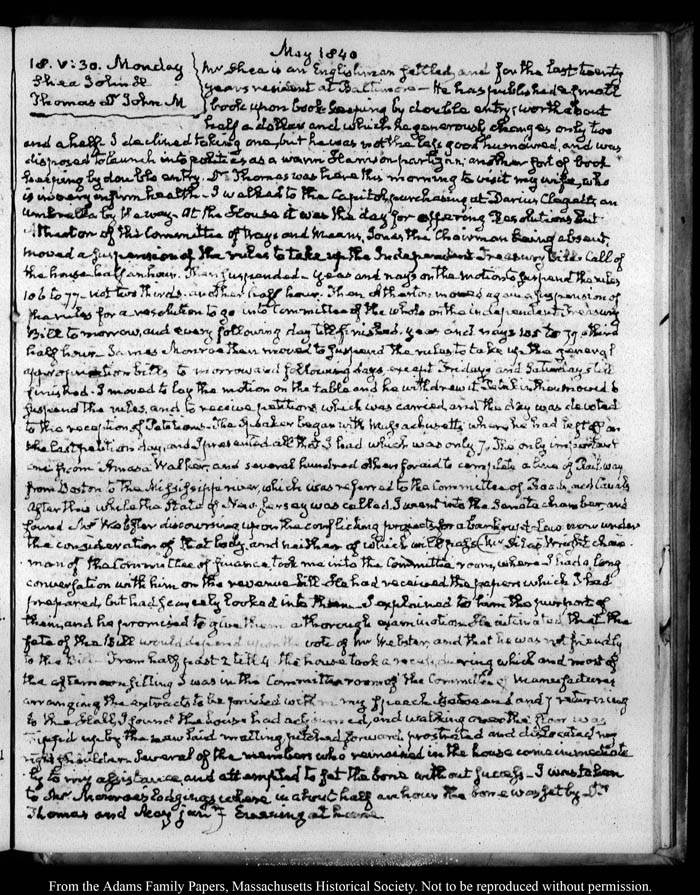 May 1840
18. V:30. Monday
Shea John H
Thomas Dr John M
Mr Shea is an Englishman settled, and for the last twenty
years resident at Baltimore — He has published a small
book upon book keeping by double entry; worth about
half a dollar and which he generously charges only two
and a half. I declined taking one, but he was not the less good humoured, and was
disposed to launch into politics as a warm Harrison partizan; another sort of book
keeping by double entry. Dr Thomas was here this morning to visit my wife, who
is in very infirm health — I walked to the Capitol, purchasing at Darius Clagett's, an
umbrella by the way. At the House it was the day for offering Resolutions but
Atherton of the Committee of Ways and Means, Jones the Chairman being absent,
moved a suspension of the rules to take up the Independent Treasury Bill. Call of
the house half an hour. Then suspended — yeas and nays on the motion to suspend the rules
106 to 77 — not two thirds. another half hour. Then Atherton moved again a suspension of
the rules for a resolution to go into Committee of the whole on the independent Treasury
Bill to morrow, and every following day till finished, yeas and nays 105 to 79 a third
half hour. James Monroe then moved to suspend the rules to take up the general
appropriation bills to morrow and following days, except Fridays and Saturdays till
finished. I moved to lay the motion on the table and he withdrew it. then moved to
suspend the rules, and to receive petitions which was carried and the day was devoted
to the reception of Petitions. The Speaker began with Massachusetts where he had left off on
the last petition day, and I presented all that I had which was only 7. The only important
one from Amasa Walker, and several hundred others for aid to complete a line of Rail way
from Boston to the Mississippi river, which was referred to the Committee of Roads and Canals
After this while the State of New Jersey was called, I went into the Senate chamber, and
found Mr Webster discoursing upon the conflicting projects for a bankrupt Law now under
the consideration of that body, and neither of which will pass — Mr Silas Wright chair
man of the Committee of finance took me into the Committee room, where I had a long
conversation with him on the revenue bill. He had received the papers which I had
prepared, but had scarcely looked into them. I explained to him the purport of
them, and he promised to give them a thorough examination. He intimated that the
fate of the Bill would depend upon the vote of Mr Webster, and that he was not friendly
to the Bill. From half past 2 till 4 the house took a recess, during which and most of
the afternoon sitting I was in the Committee room of the Committee of Manufactures
arranging the extracts to be printed with my speech and returning
to the Hall, I found the house had adjourned, and walking over the floor was
tripped up by the new laid matting, pitched forward, prostrated and dislocated my
right shoulder. Several of the members who remained in the house came immediate
ly to my assistance and attempted to set the bone without success — I was taken
to Mr Monroe's lodgings where in about half an hour the bone was set by Dr
Thomas and May junr. Evening at home
From the Adams Family Papers, Massachusetts Historical Society. Not to be reproduced without permission.